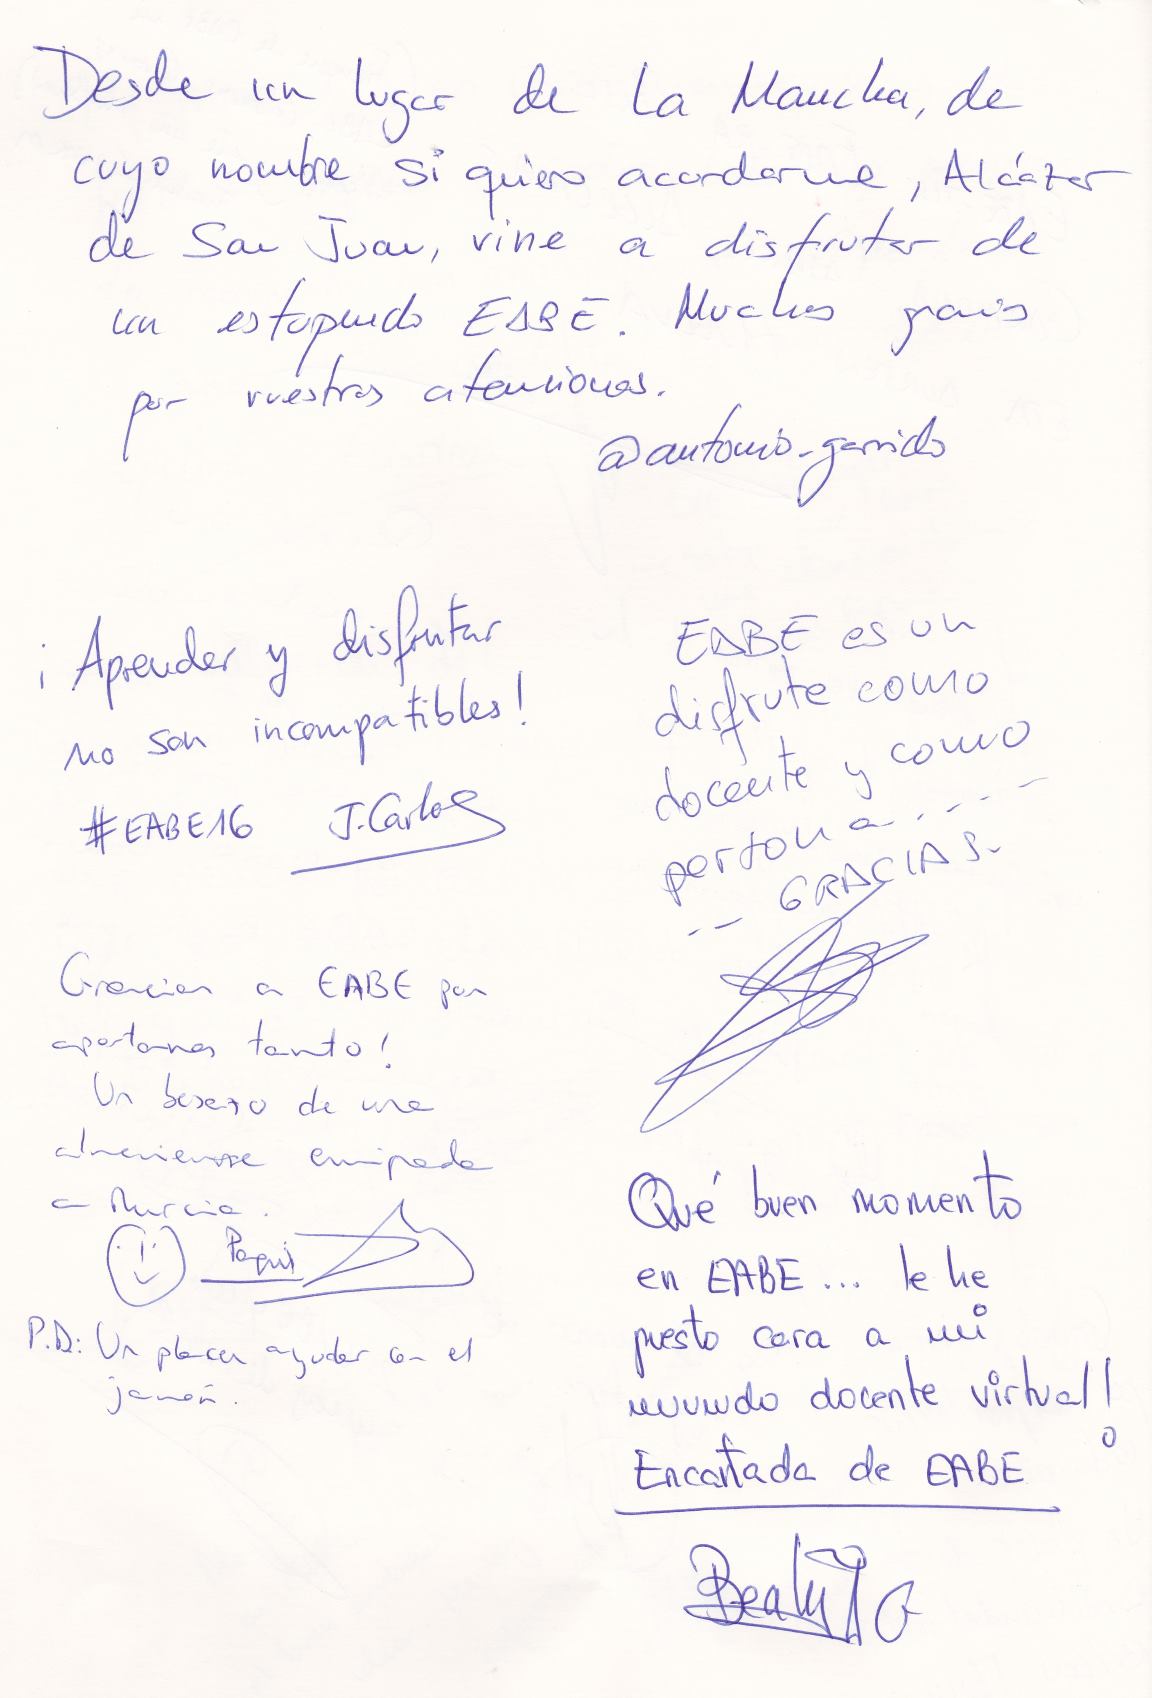 Desde un lugar de La Mancha, de
cuyo nombre si quiero acordarme, Alcázar
de San Juan, vine a disfrutar de
un estupendo EABE. Muchas gracias
por vuestras atenciones.
@antonio_garrido
¡Aprender y disfrutar
no son incompatibles!
#EABE16 J.Carlos
EABE es un
disfrute como
docente y como
persona.----
-- GRACIAS.
Gracias a EABE por
aportarnos tanto!
Un besazo de una
almeriense emigrada
a Murcia.
Paqui
P.D: Un placer ayudar con el
jamón.
Qué buen momento
en EABE... le he
puesto cara a mi
mundo docente virtual!
Encantada de EABE